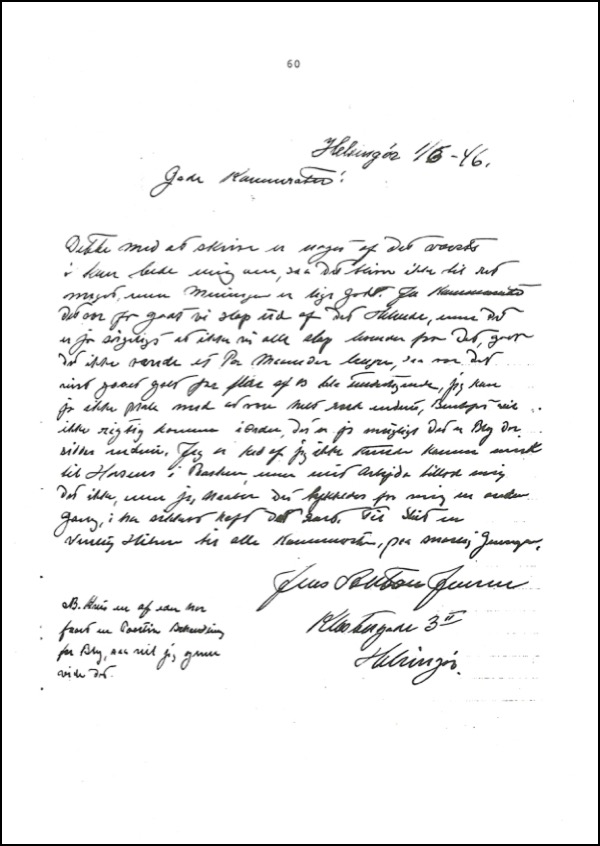 60
Helsingör 1/5-46.
Gode Kammerater!
Dette med at skrive er noget af det værste
i kan bede mig om, saa det bliver ikke til ret
meget, men Meningen er lige godt. Ja Kammerater
det var jo godt vi slap ud af det Helvede, men det
er jo sörgeligt at ikke vi alle slap fra det, havde
det ikke varede et Par Maaneder længer, saa var det
nok gaaet godt for flere af os, jeg kan
jo ikke prale med at være helt rask endnu, vil
ikke rigtig komme i orden, det er jo muligt det er Bly der
sidder endnu. Jeg er ked af jeg ikke kunde komme med
til Horsens i Paasken, men mit Arbejde tillod mig
det ikke, men jeg haaber det lykkedes for mig en anden
Gang, i har sikkert haft det rart. Til Slut en
Venlig Hilsen til alle Kammerater, paa Gensyn.
Jens Anton Jensen
Klostergade 3 II
Helsingör.
NB. Hvis en af eder har
faaet en Positiv Behandling
for Bly, saa vil jeg gerne
vide det.